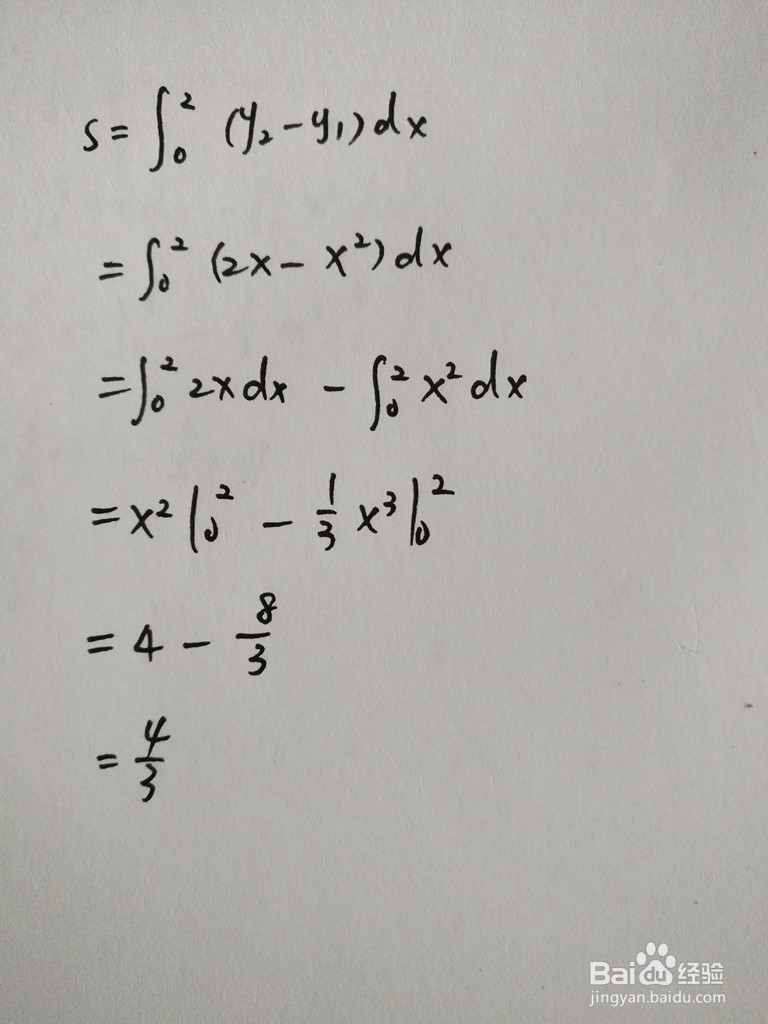 S = ∫₀² (y₂ - y₁) dx
= ∫₀² (2x - x²) dx
= ∫₀² 2x dx - ∫₀² x² dx
= x² |₀² - 1/3 x³ |₀²
= 4 - 8/3
= 4/3
Baidu经验
jingyan.baidu.com